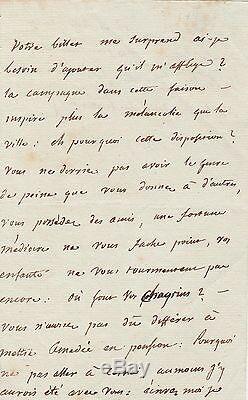 Votre billet me surprend ai-je
besoin d'ajouter qu'il m'afflige?
la campagne dans cette saison –
inspire plus la mélancolie que la
ville: eh pourquoi cette disposition?
vous ne devriez pas avoir le genre
de peine que vous donne à d'autres
vous possedez des amis, une fortune
médiocre ne vous fache point, vos
enfants ne vous tourmentent pas
encore: où sont vos chagrins? –
vous n'auriez pas dû différer à
mettre Amedée en pension: Pourquoi
ne pas aller à au moins j'y
aurois été avec vous: écrivez moi je